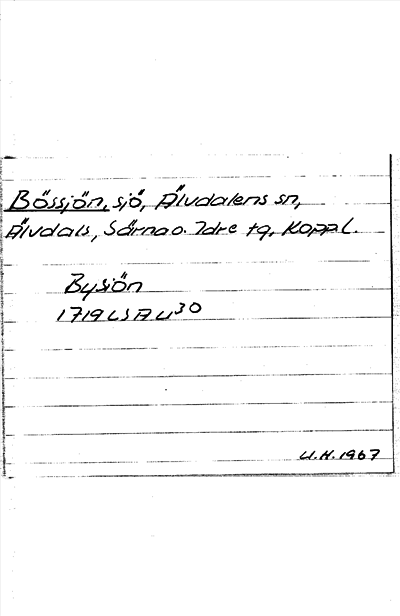 Bössjön, sjö, Älvdalens sn,
Älvdals, Särna o. Idre tg, Koppl.
Bysiön
1719 LSA U30
U.H. 1967